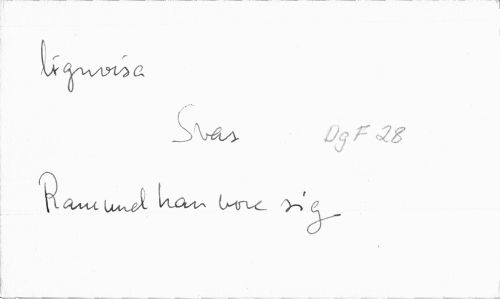 Vignvisa
Svas DgF 28
Ramund han vore sig